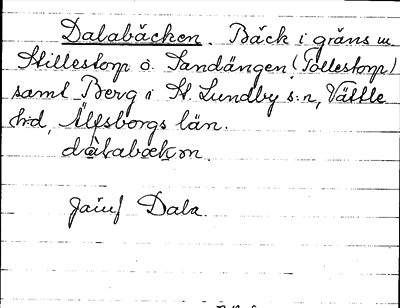 Dalabäcken. Bäck i gräns m.
Stillestorp o. Sandängen (Tollestorp)
samt Berg i St. Lundby s:n, Vättle
h:d, Älfsborgs län.
dàlabæ̀kɔn.
Jainf Dala.